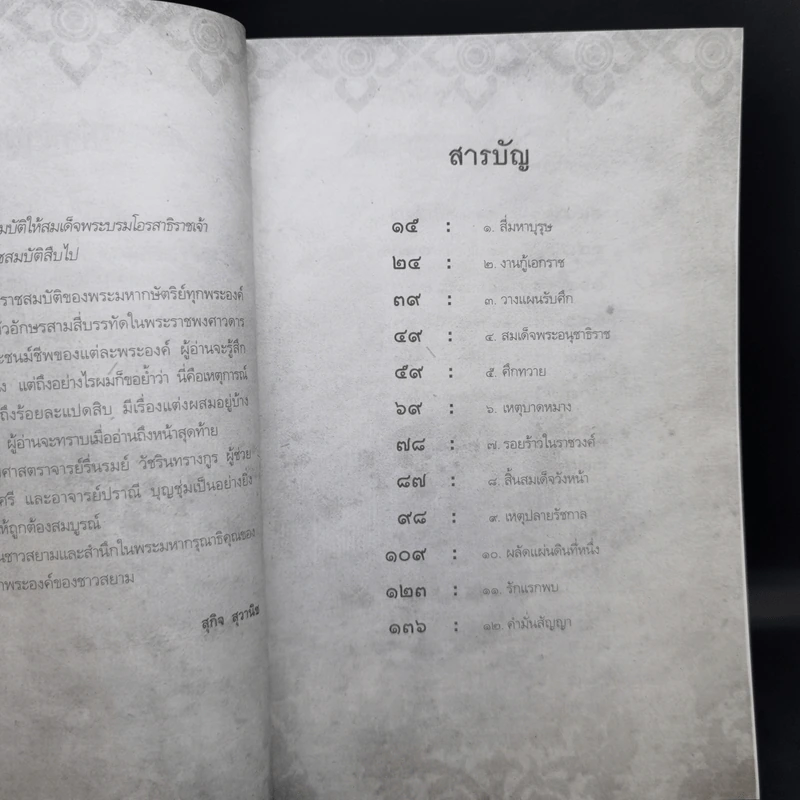 มบัติให้สมเด็จพระบรมโอรสาธิราชเจ้า
ชสมบัติสืบไป
ราชสมบัติของพระมหากษัตริย์ทุกพระองค์
ัวอักษรสามสี่บรรทัดในพระราชพงศาวดาร
ะชนม์ชีพของแต่ละพระองค์ ผู้อ่านจะรู้สึก
ง แต่ถึงอย่างไรผมก็ขอย้ำว่า นี่คือเหตุการณ์
ถึงร้อยละแปดสิบ มีเรื่องแต่งผสมอยู่บ้าง
ผู้อ่านจะทราบเมื่ออ่านถึงหน้าสุดท้าย
ศาสตราจารย์รื่นรมย์ วัชรินทรางกูร ผู้ช่วย
ศรี และอาจารย์ปราณี บุญชุ่มเป็นอย่างยิ่ง
ห้ถูกต้องสมบูรณ์
นชาวสยามและสำนึกในพระมหากรุณาธิคุณของ
กพระองค์ของชาวสยาม
สุกิจ สุวานิช
สารบัญ
๑๕ : ๑. สี่มหาบุรุษ
๒๔ : ๒. งานกู้เอกราช
๓๙ : ๓. วางแผนรับศึก
๔๙ : ๔. สมเด็จพระอนุชาธิราช
๕๙ : ๕. ศึกทวาย
๖๙ : ๖. เหตุบาดหมาง
๗๘ : ๗. รอยร้าวในราชวงศ์
๘๗ : ๘. สิ้นสมเด็จวังหน้า
๙๘ : ๙. เหตุปลายรัชกาล
๑๐๙ : ๑๐. ผลัดแผ่นดินที่หนึ่ง
๑๒๓ : ๑๑. รักแรกพบ
๑๓๖ : ๑๒. คำมั่นสัญญา